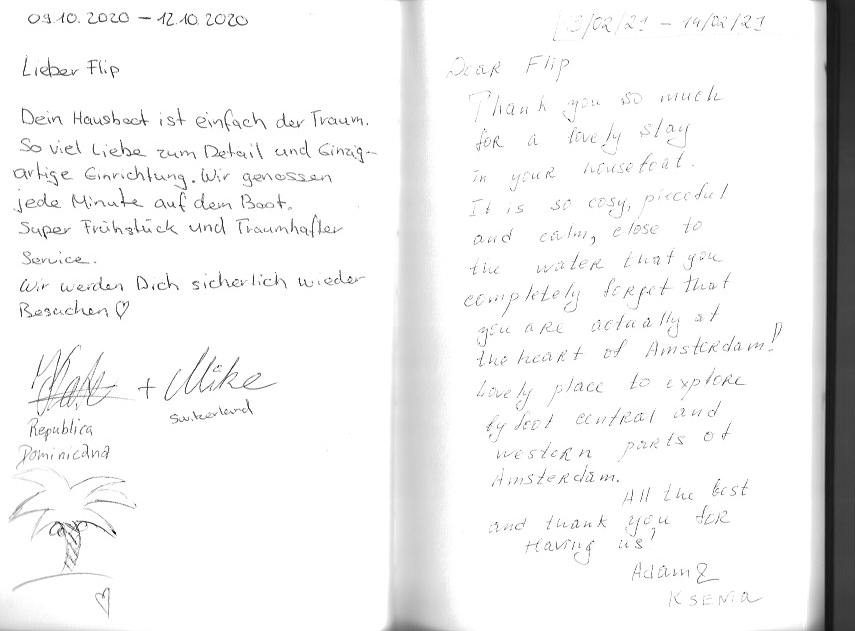 09.10.2020 – 12.10.2020
Lieber Flip
Dein Hausboot ist einfach der Traum.
So viel Liebe zum Detail und Einzig-
artige Einrichtung. Wir genossen
jede Minute auf dem Boot.
Super Frühstück und Traumhafter
Service.
Wir werden Dich sicherlich wieder
Besuchen ♡
+ Mike
Switzerland
Republica
Dominicana
13/02/21 – 14/02/21
Dear Flip
Thank you so much
for a lovely stay
in your houseboat.
It is so cosy, pieceful
and calm, close to
the water that you
completely forget that
you are actually at
the heart of Amsterdam!
Lovely place to explore
by foot central and
western parts of
Amsterdam.
All the best
and thank you for
Having us!
Adam &
Ksenia